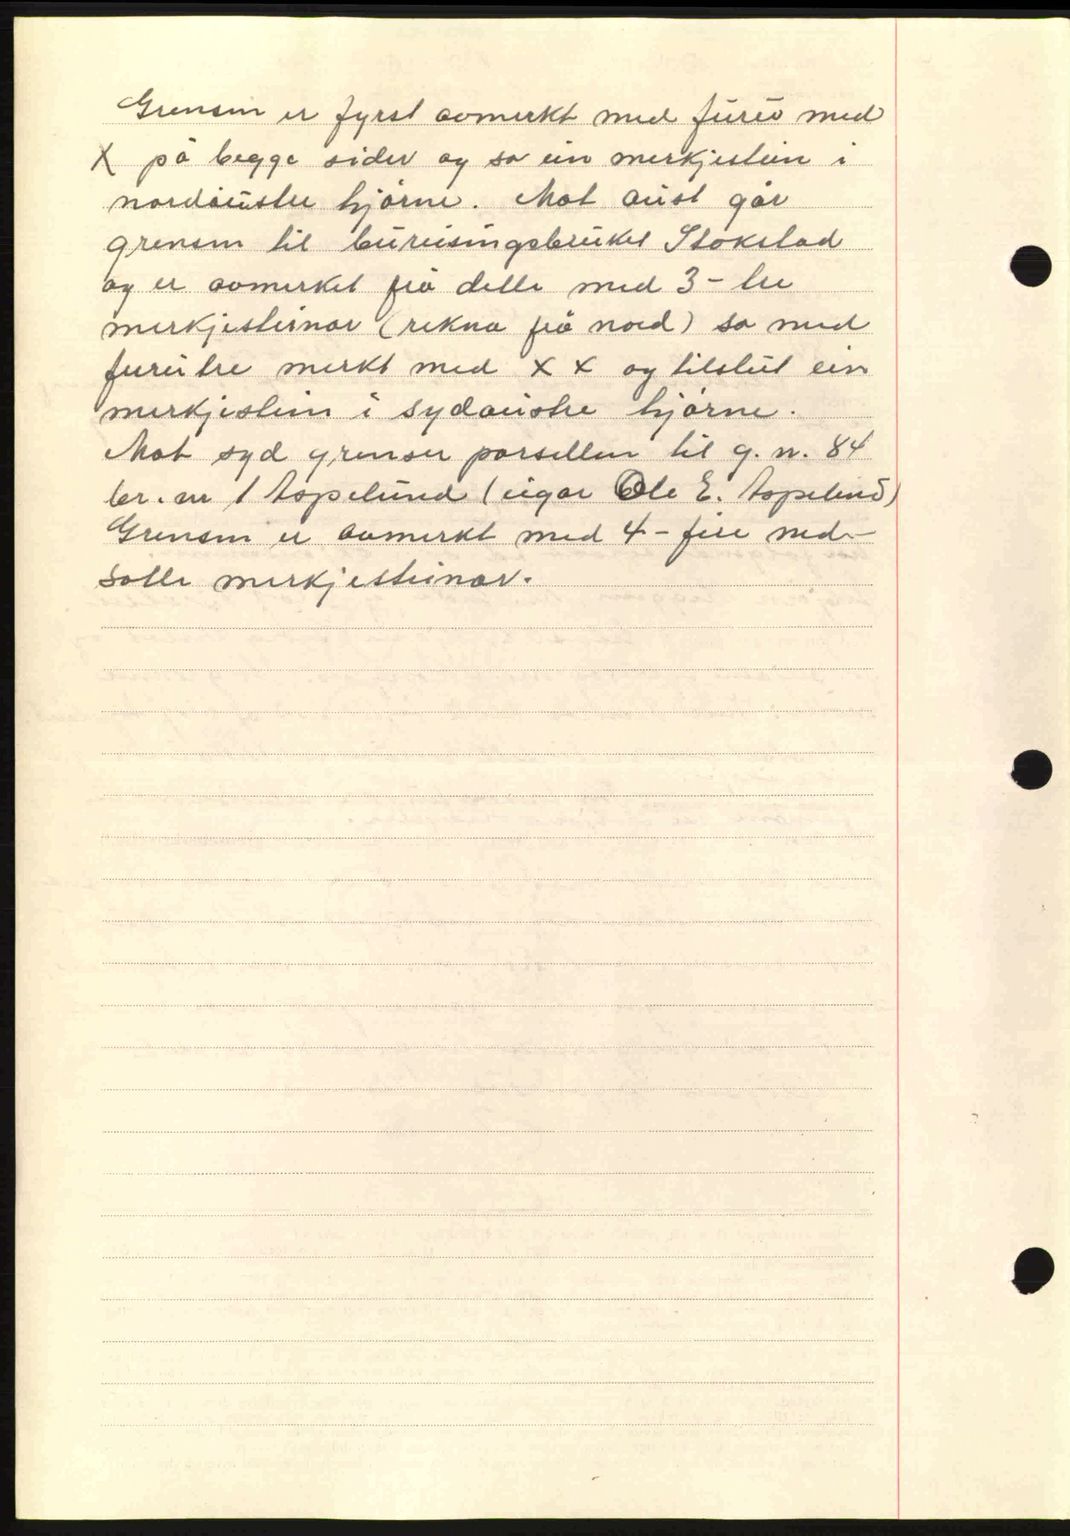 Grensen er fyrst avmerkt med furu med
X på begge sider og so ein merkjestein i
nordaustre hjørne. Mot aust går
grensen til bureisingsbruket Stokstad
og er avmerket frå dette med 3 - tre
merkjesteinar (rekna frå nord) so med
furutre merkt med X X og tilslut ein
merkjestein i sydaustre hjørne.
Mot syd grenser parsellen til g. n. 84
br. nr 1 Aspelund (eigar Ole E. Aspelund)
Grensen er avmerkt med 4 - fire ned-
satte merkjesteinar.